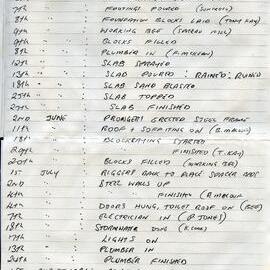 7th " " FOOTINGS POURED
8th " " FOUNDATION BLOCKS LAID (TONY KAY)
9th " " WORKING BEE
9th " " BLOCKS FILLED
8th " " PLUMBER IN
12th " " SLAB SPRAYED
13th " " SLAB POURED : RAINED : RUINED
18th " " SLAB SAND BLASTED
25th " " SLAB TOPPED
27th " " SLAB FINISHED
2ND JUNE " PRONGERS ERECTED STEEL FRAME
11th " " ROOF + SOFFITING ON
18th " " BLOCKLAYING STARTED
" " FINISHED (T. KAY)
20th " " BLOCKS FILLED (WORKING BEE)
1st JULY " RIGGERS BACK TO PLACE
2ND " " STEEL WALLS UP
4th " " " FINISHED
4th " " DOORS HUNG, TOILET ROOF ON (BEE)
7th " " ELECTRICIAN IN (P. JONES)
18th " " STORMWATER
17th " " LIGHTS ON
18th " " PLUMBER IN
24th " " PLUMBER FINISHED